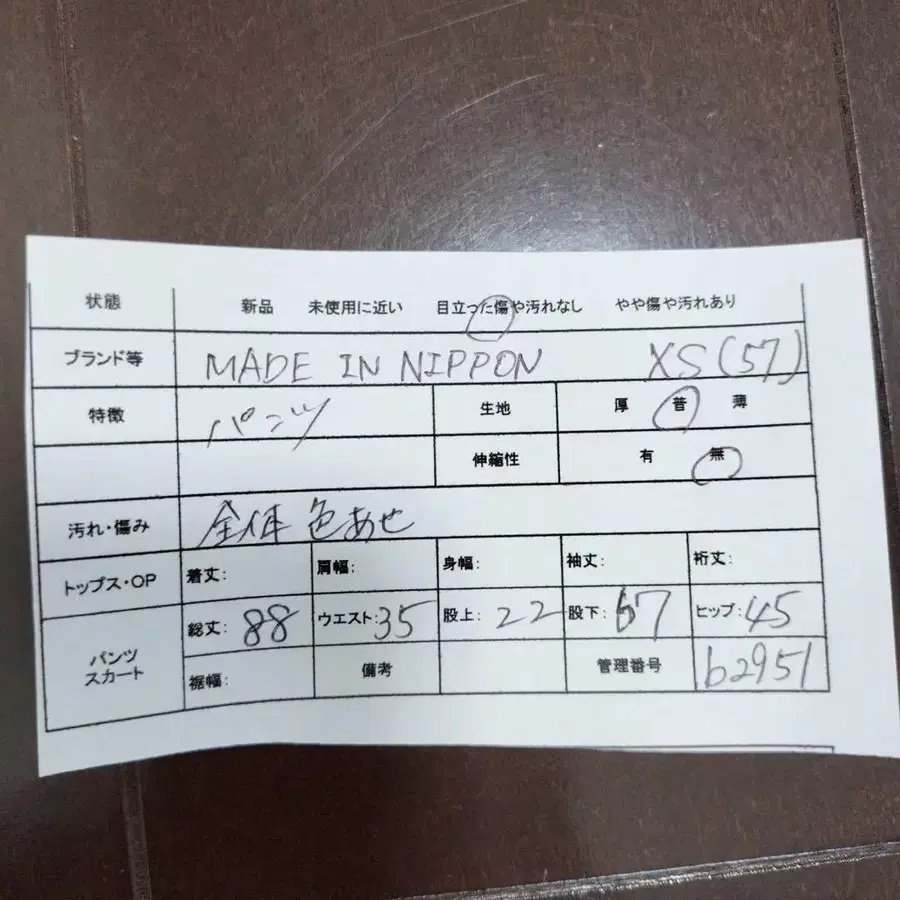 状態 新品 未使用に近い 目立った傷や汚れなし やや傷や汚れあり
ブランド等 MADE IN NIPPON XS(57)
特徴 パンツ 生地 厚 普 薄
伸縮性 有 無
汚れ・傷み 全体色あせ
トップス・OP 着丈: 肩幅: 身幅: 袖丈: 裄丈:
パンツ
スカート
総丈: 88 ウエスト: 35 股上: 22 股下: 67 ヒップ: 45
裾幅: 備考 管理番号 b2951